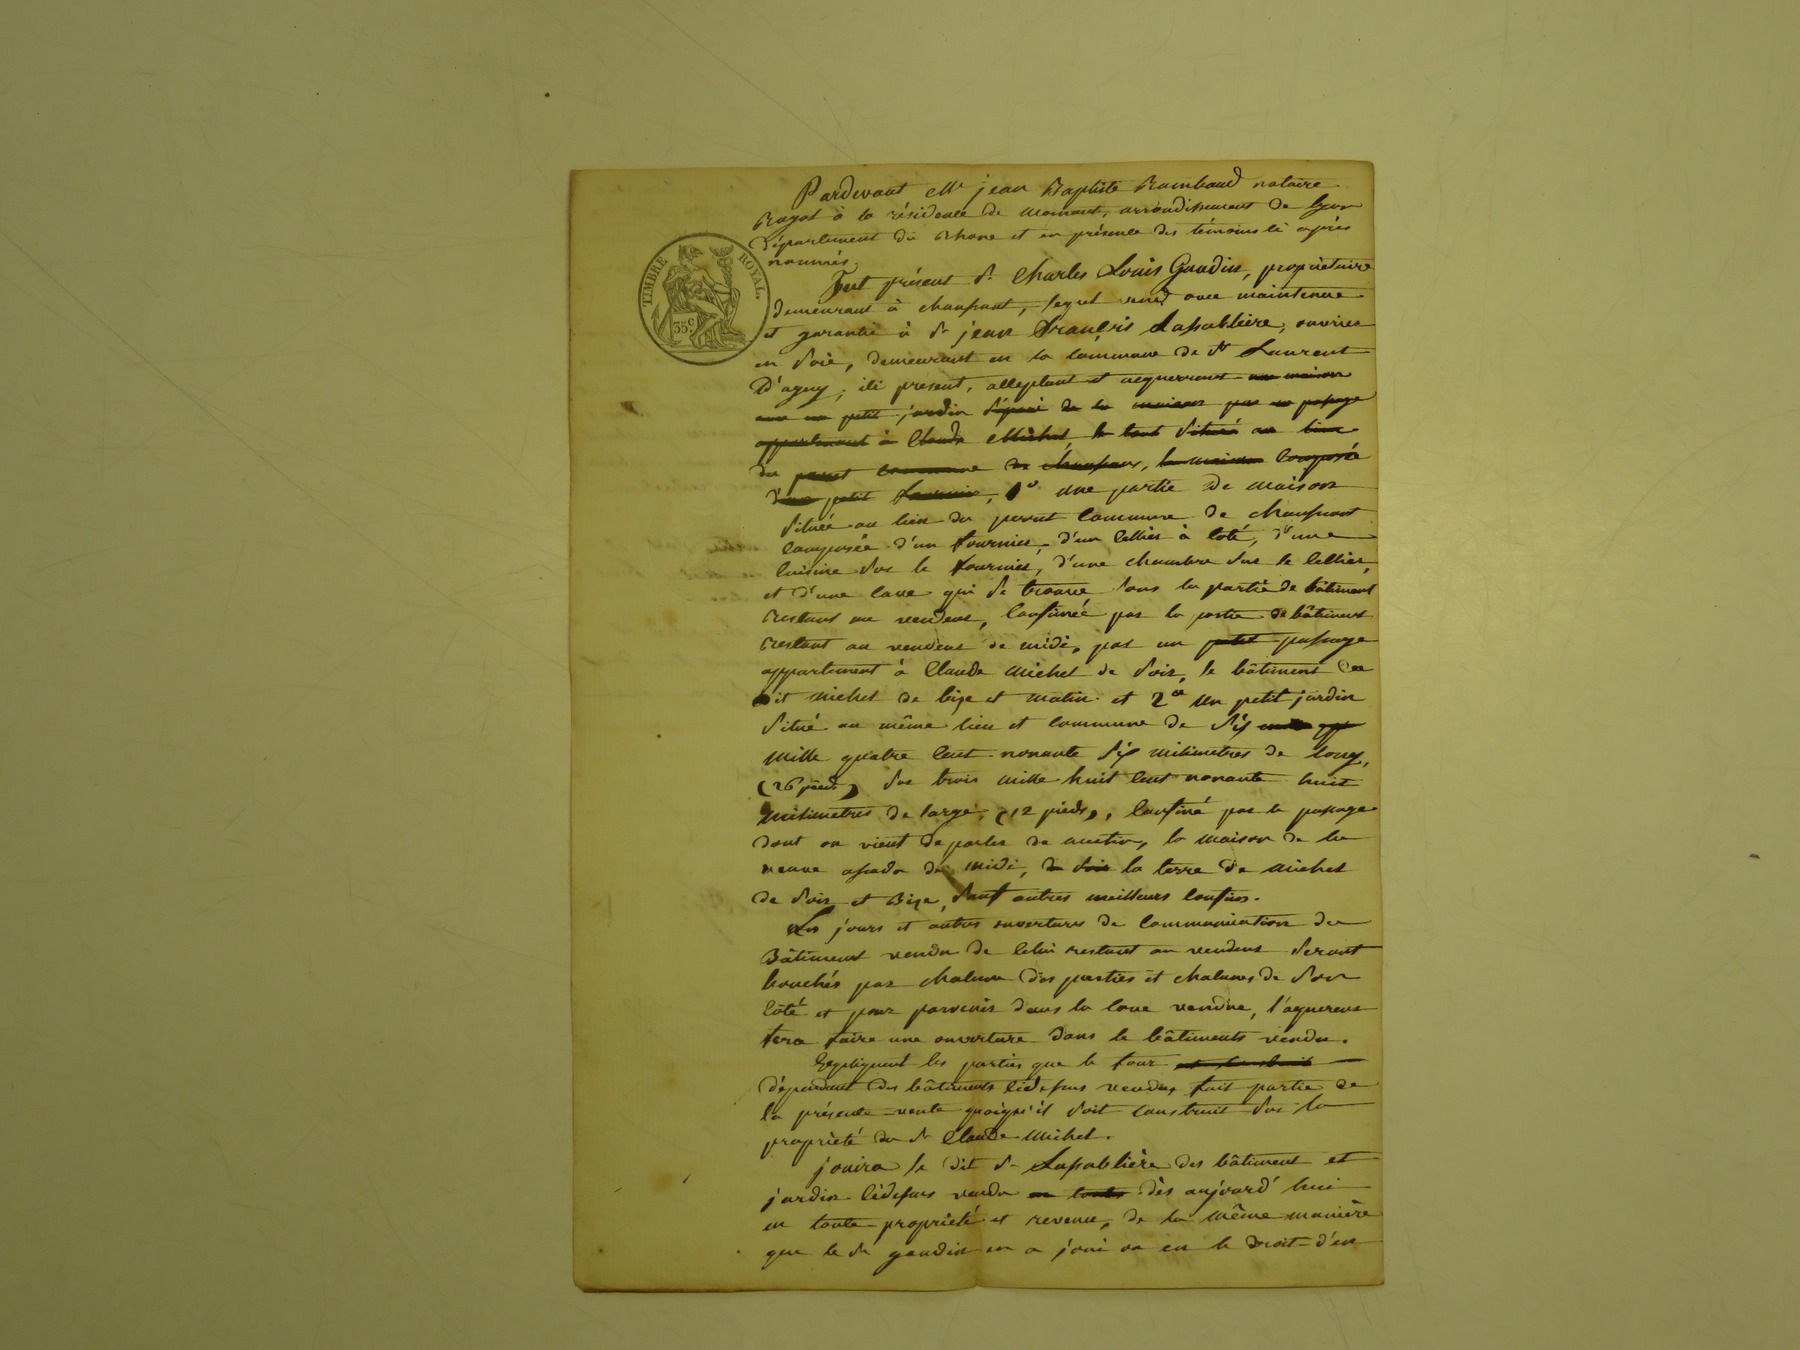 TIMBRE ROYAL.
35c.
Pardevant Me jean Baptiste Rambaud notaire
Royal à la résidence de Mornant, arrondissement de Lyon
Département du Rhone et en présence des témoins ci après
nommés;
Fut présent Sr. Charles Louis Gaudin, propriétaire
demeurant à chaussant, lequel vend avec maintenue
et garantie à Sr jean François Lassablière, ouvrier
en soie, demeurant en la commune de St Laurent
D'agny, ici présent, acceptant et acquerreur une maison
avec un petit jardin séparé de la maison par un passage
appartenant à Claude Michel, le tout situé au lieu
du commune de chaussant, la maison composée
d'un petit fournier, 1o une partie de maison
située au lieu du commune de chaussant
composée d'un fournier, d'un cellier à coté, d'une
cuisine sur le fournier, d'une chambre sur le cellier,
et d'une cave qui se trouve sous la partie de bâtiment
restant au vendeur, confinée par la partie de bâtiment
restant au vendeur de midi, par un petit passage
appartenant à Claude Michel de soir, le bâtiment du
dit Michel de bize et matin et 2o un petit jardin
situé au même lieu et commune de six
mille quatre cent nonante six milimetres de long,
(26 pieds) sur trois mille huit cent nonante huit
milimetres de large, (12 pieds), confiné par le passage
dont on vient de parler de matin, la maison de la
veuve de midi, de soir la terre de Michel
de soir et Bize, sauf autres meilleurs confins.
Les jours et autres ouvertures de communication du
Bâtiment vendu de celui restant au vendeur seront
bouchés par chacune des parties et chacunes de son
côté et pour parvenir dans la cave vendue, l'aquereur
fera faire une ouverture dans le bâtiments vendu.
Expliquent les parties que le four
dépendant des bâtiments cidessus vendus fait partie de
la présente vente quoiqu'il soit construit sur la
propriété du Sr Claude Michel.
jouira le dit Sr Lassablière des bâtiment et
jardin cidessus vendu en toute dès aujourd'hui
en toute propriété et revenu, de la même manière
que le Sr gaudin en a joui ou eu le Droit d'en